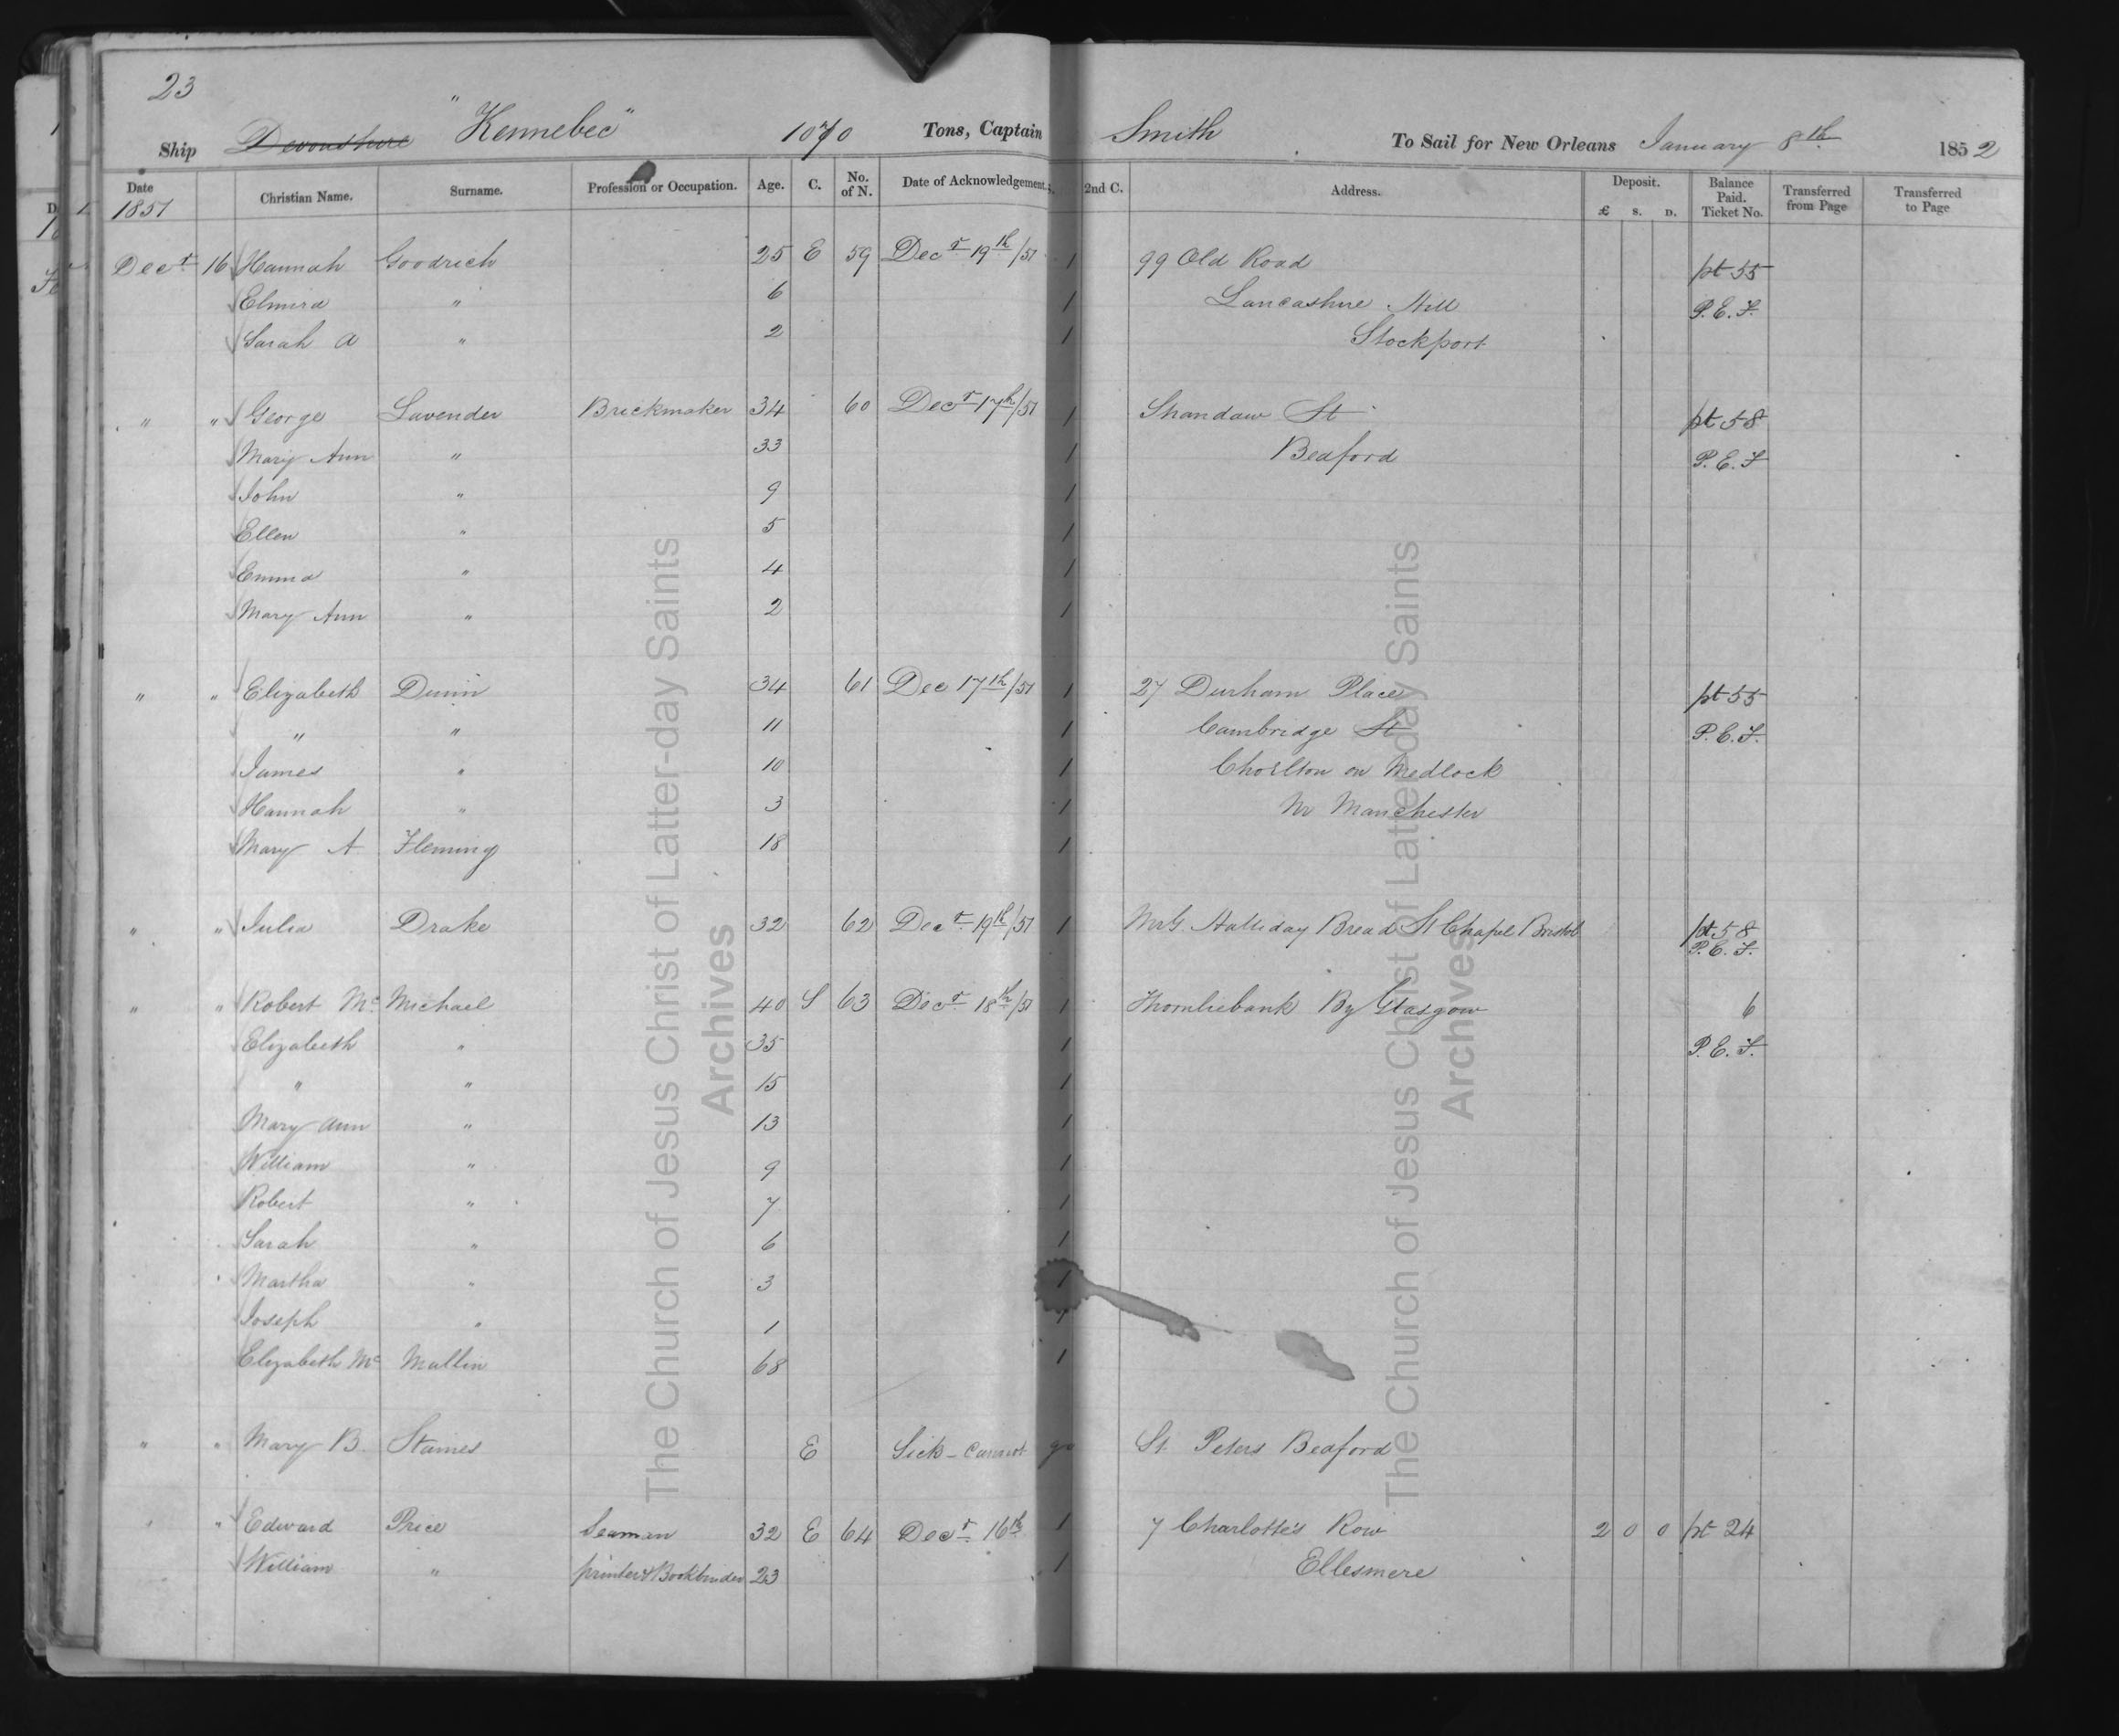 23
Ship Devonshire "Kennebec" 1070 Tons, Captain Smith To Sail for New Orleans January 8th 1852
Date Christian Name. Surname. Profession or Occupation. Age. C. No. of N. Date of Acknowledgement. 2nd C. Address. Deposit. £ S. D. Balance Paid. Ticket No. Transferred from Page Transferred to Page
1851
Decr 16 Hannah Goodrich 25 E 59 Decr 19th/51 1 99 Old Road pt 55
Elmira " 6 1 Lancashire Hill P.E.F.
Sarah A " 2 1 Stockport
" " George Lavender Brickmaker 34 60 Decr 17th/51 1 St pt 58
Mary Ann " 33 1 Bedford P.E.F
John " 9 1
Ellen " 5 1
Emma " 4 1
Mary Ann " 2 1
" " Elizabeth Dunn 34 61 Dec 17th/51 1 27 Durham Place pt 55
" " 11 1 Cambridge St P.E.F.
James " 10 1 Chorlton on Medlock
Hannah " 3 1 Nr Manchester
Mary A. Fleming 18 1
" " Julia Drake 32 62 Decr 19th/51 1 Halliday Broad St Chapel Bristol pt 58
P.E.F.
" " Robert Mc Michael 40 S 63 Decr 18th/51 1 Thornliebank By Glasgow 6
Elizabeth " 35 1 P.E.F.
" " 15 1
Mary Ann " 13 1
William " 9 1
Robert " 7 1
Sarah " 6 1
Martha " 3 1
Joseph " 1 1
Elizabeth Mc Mallin 68 1
" " Mary B. Stames E Sick - Cannot go St. Peters Bedford
" " Edward Price Seaman 32 E 64 Decr 16th 1 7 Charlotte's Row 2 0 0 pt 24
William " printer & Bookbinder 23 1 Ellesmere
The Church of Jesus Christ of Latter-day Saints
Archives
The Church of Jesus Christ of Latter-day Saints
Archives